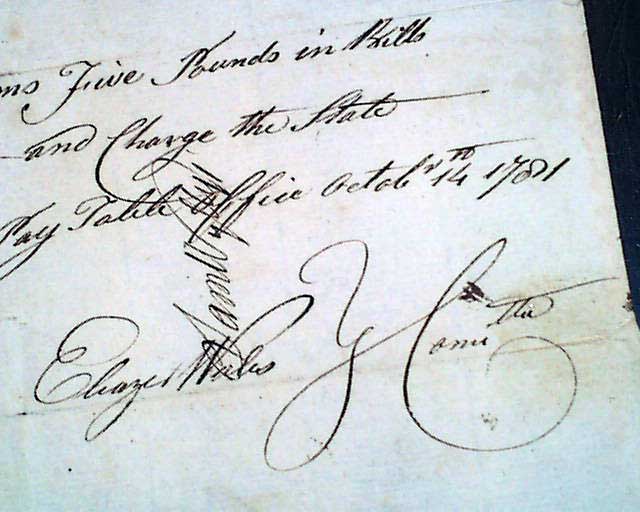 ms Five Pounds in Bills
and Charge the State
Pay Table Office Octobr 14th 1781
Eleazer Wales } Comittee